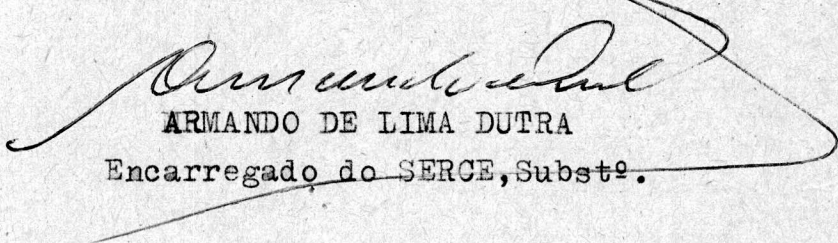 ARMANDO DE LIMA DUTRA
Encarregado do SERCE,Substº.